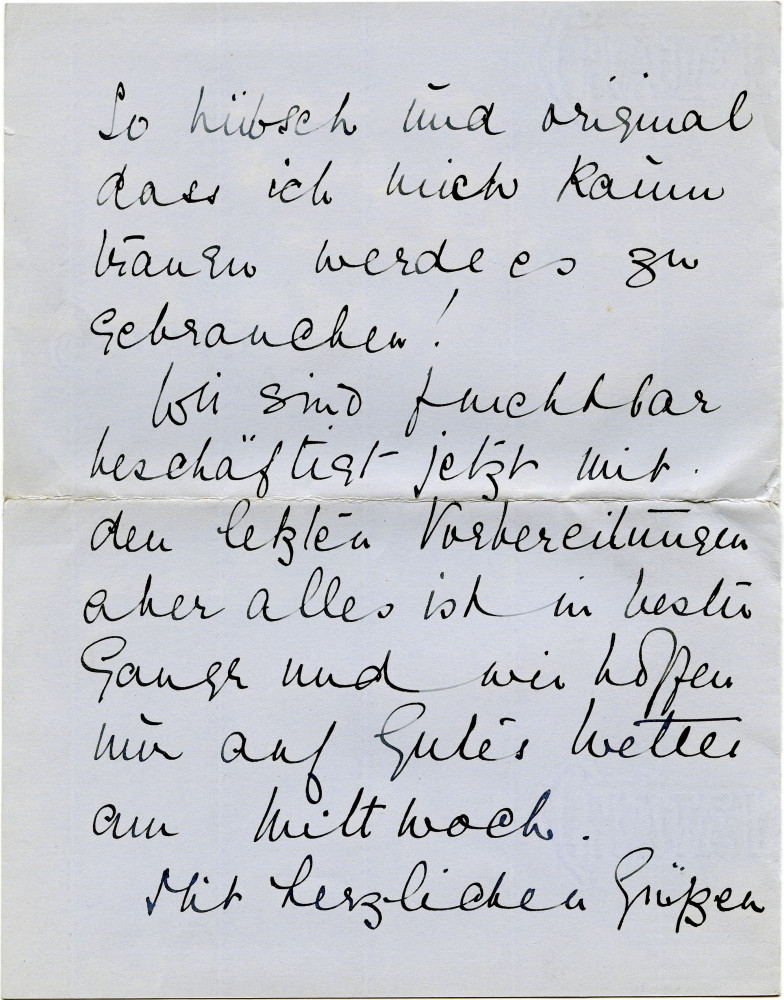 So hübsch und original
dass ich mich kaum
trauen werde es zu
gebrauchen!
Wir sind furchtbar
beschäftigt jetzt mit
den letzten Vorbereitungen
aber alles ist in bester
Gange und wir hoffen
nur auf Gutes Wetter
am Mittwoch.
Mit herzlichen Grüßen